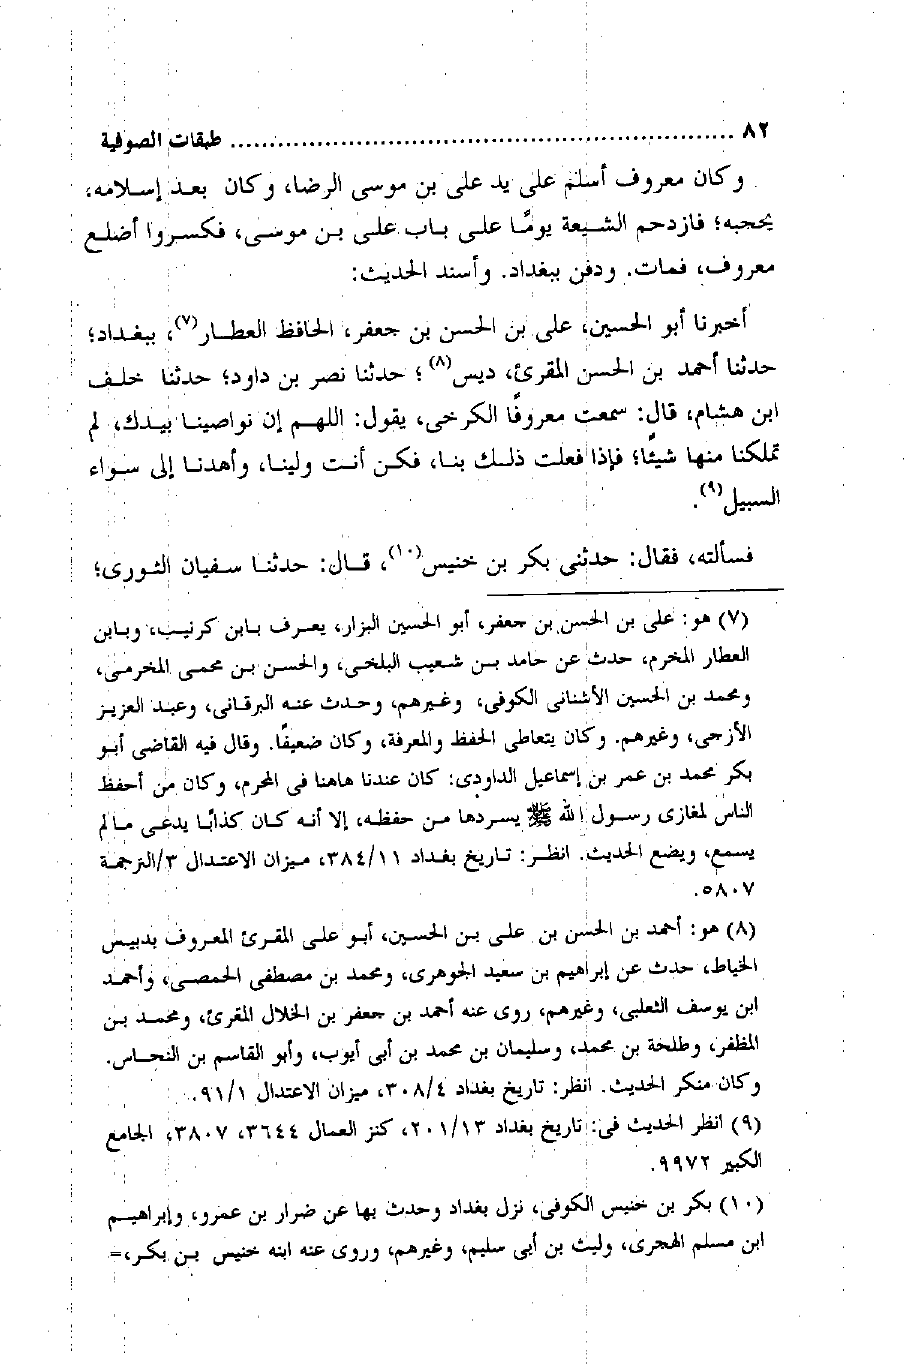 ٨٢ ................................................................ طبقات الصوفية
وكان معروف أسلم على يد على بن موسى الرضا، وكان بعد إسلامه،
يحجبه؛ فازدحم الشيعة يومًا على باب على بن موسى، فكسروا أضلع
معروف، فمات. ودفن ببغداد. وأسند الحديث:
أخبرنا أبو الحسين، على بن الحسن بن جعفر، الحافظ العطار(٧)، ببغداد؛
حدثنا أحمد بن الحسن المقرئ، ديس(٨)؛ حدثنا نصر بن داود؛ حدثنا خلف
ابن هشام، قال: سمعت معروفًا الكرخى، يقول: اللهم إن نواصينا بيدك، لم
تملكنا منها شيئًا؛ فإذا فعلت ذلك بنا، فكن أنت ولينا، وأهدنا إلى سواء
السبيل(٩).
فسألته، فقال: حدثنى بكر بن خنيس(١٠)، قال: حدثنا سفيان الثورى؛
(٧) هو: على بن الحسن بن جعفر، أبو الحسين البزار، يعرف بابن كرنيب، وبابن
العطار المخرم، حدث عن حامد بن شعيب البلخى، والحسن بن محمى المخرمى،
ومحمد بن الحسين الأشنانى الكوفى، وغيرهم، وحدث عنه البرقانى، وعبد العزيز
الأزجى، وغيرهم. وكان يتعاطى الحفظ والمعرفة، وكان ضعيفًا. وقال فيه القاضى أبو
بكر محمد بن عمر بن إسماعيل الداودى: كان عندنا هاهنا فى المخرم، وكان من أحفظ
الناس لمغازى رسول الله ﷺ يسردها من حفظه، إلا أنه كان كذابًا يدعى مالم
يسمع، ويضع الحديث. انظر: تاريخ بغداد ٣٨٤/١١، ميزان الاعتدال ٣/الترجمة
٥٨٠٧.
(٨) هو: أحمد بن الحسن بن على بن الحسين، أبو على المقرئ المعروف بدبيس
الخياط، حدث عن إبراهيم بن سعيد الجوهرى، ومحمد بن مصطفى الحمصى، وأحمد
ابن يوسف الثعلبى، وغيرهم، روى عنه أحمد بن جعفر بن الخلال المقرئ، ومحمد بن
المظفر، وطلحة بن محمد، وسليمان بن محمد بن أبى أيوب، وأبو القاسم بن النحاس.
وكان منكر الحديث. انظر: تاريخ بغداد ٣٠٨/٤، ميزان الاعتدال ٩١/١.
(٩) انظر الحديث فى: تاريخ بغداد ٢٠١/١٣، كنز العمال ٣٦٤٤، ٣٨٠٧، الجامع
الكبير ٩٩٧٢.
(١٠) بكر بن خنيس الكوفى، نزل بغداد وحدث بها عن ضرار بن عمرو، وإبراهيم
ابن مسلم الهجرى، وليث بن أبى سليم، وغيرهم، وروى عنه ابنه خنيس بن بكر،=